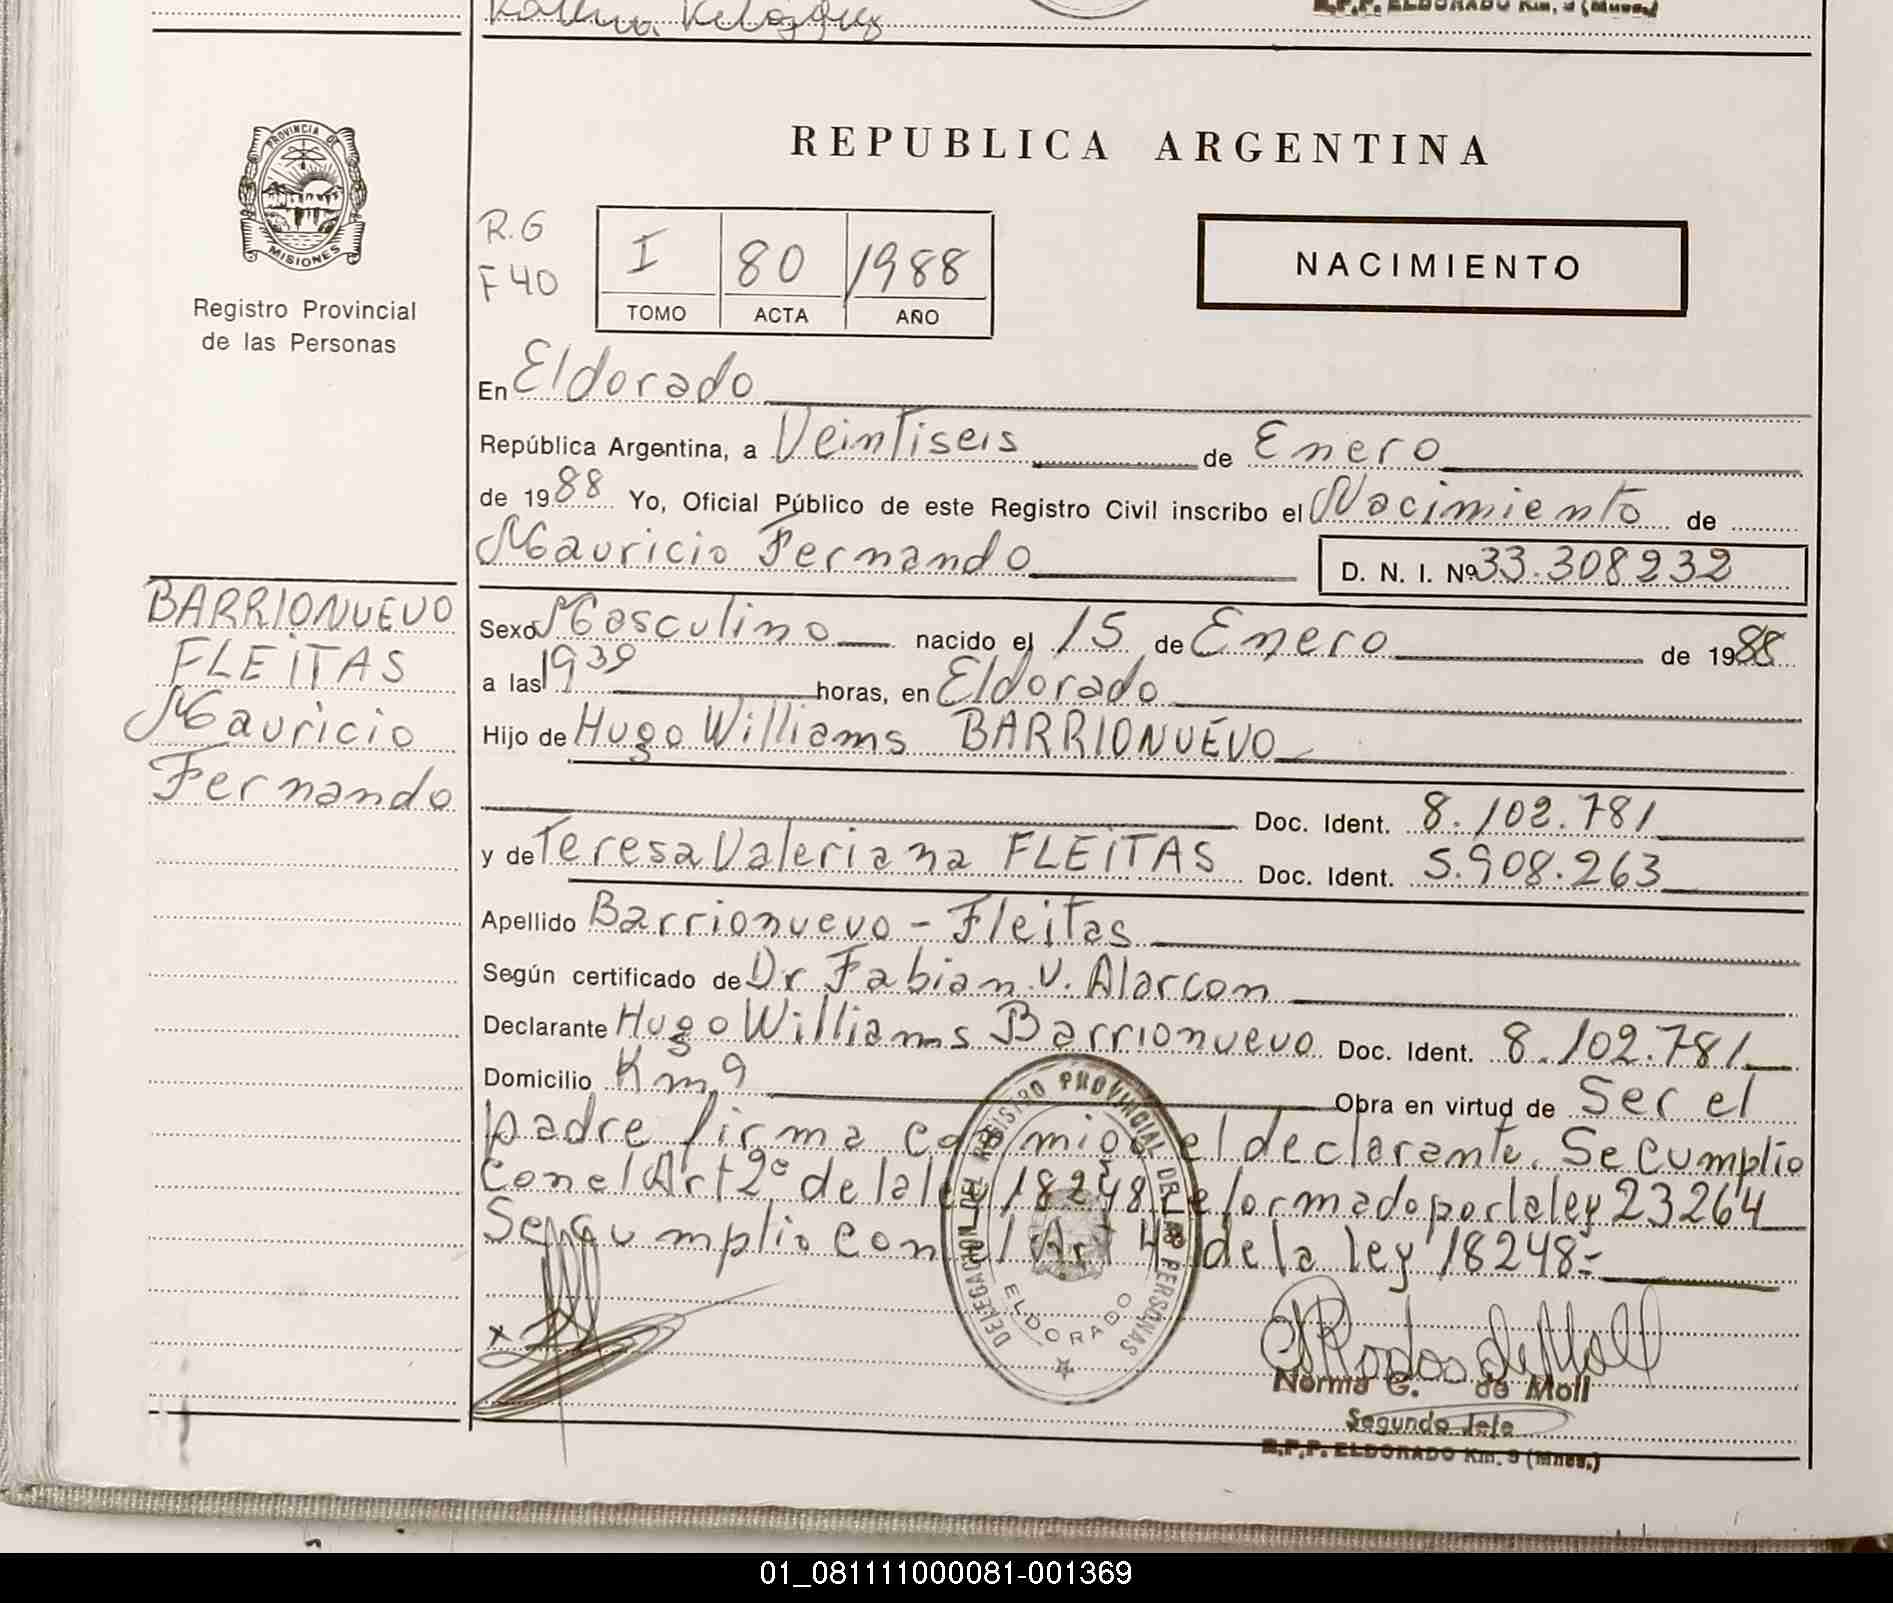 R.P.P. ELDORADO Km. 9 (Mnes.)
PROVINCIA DE
MISIONES
Registro Provincial
de las Personas
REPUBLICA ARGENTINA
R.G
F 40
I 80 1988
TOMO ACTA AÑO
NACIMIENTO
En Eldorado
República Argentina, a Veintiseis de Enero
de 1988 Yo, Oficial Público de este Registro Civil inscribo el Nacimiento de
Mauricio Fernando
D. N. I. Nº 33.308232
BARRIONUEVO
FLEITAS
Mauricio
Fernando
Sexo Masculino nacido el 15 de Enero de 1988
a las 19 30 horas, en Eldorado
Hijo de Hugo Williams BARRIONUEVO
Doc. Ident. 8.102.781
y de Teresa Valeriana FLEITAS Doc. Ident. 5.908.263
Apellido Barrionuevo - Fleitas
Según certificado de Dr Fabian V. Alarcon
Declarante Hugo Williams Barrionuevo Doc. Ident. 8.102.781
Domicilio Km 9 Obra en virtud de Ser el
padre firma conmigo el declarante. Se Cumplio
Con el Art 2º de la ley 18248 reformado por la ley 23264
Se Cumplio con el Art 4 de la ley 18248=
DELEGACION DEL REGISTRO PROVINCIAL DE LAS PERSONAS
ELDORADO
x
Norma G. de Moll
Segundo Jefe
R.P.P. ELDORADO Km. 9 (Mnes.)
01_081111000081-001369